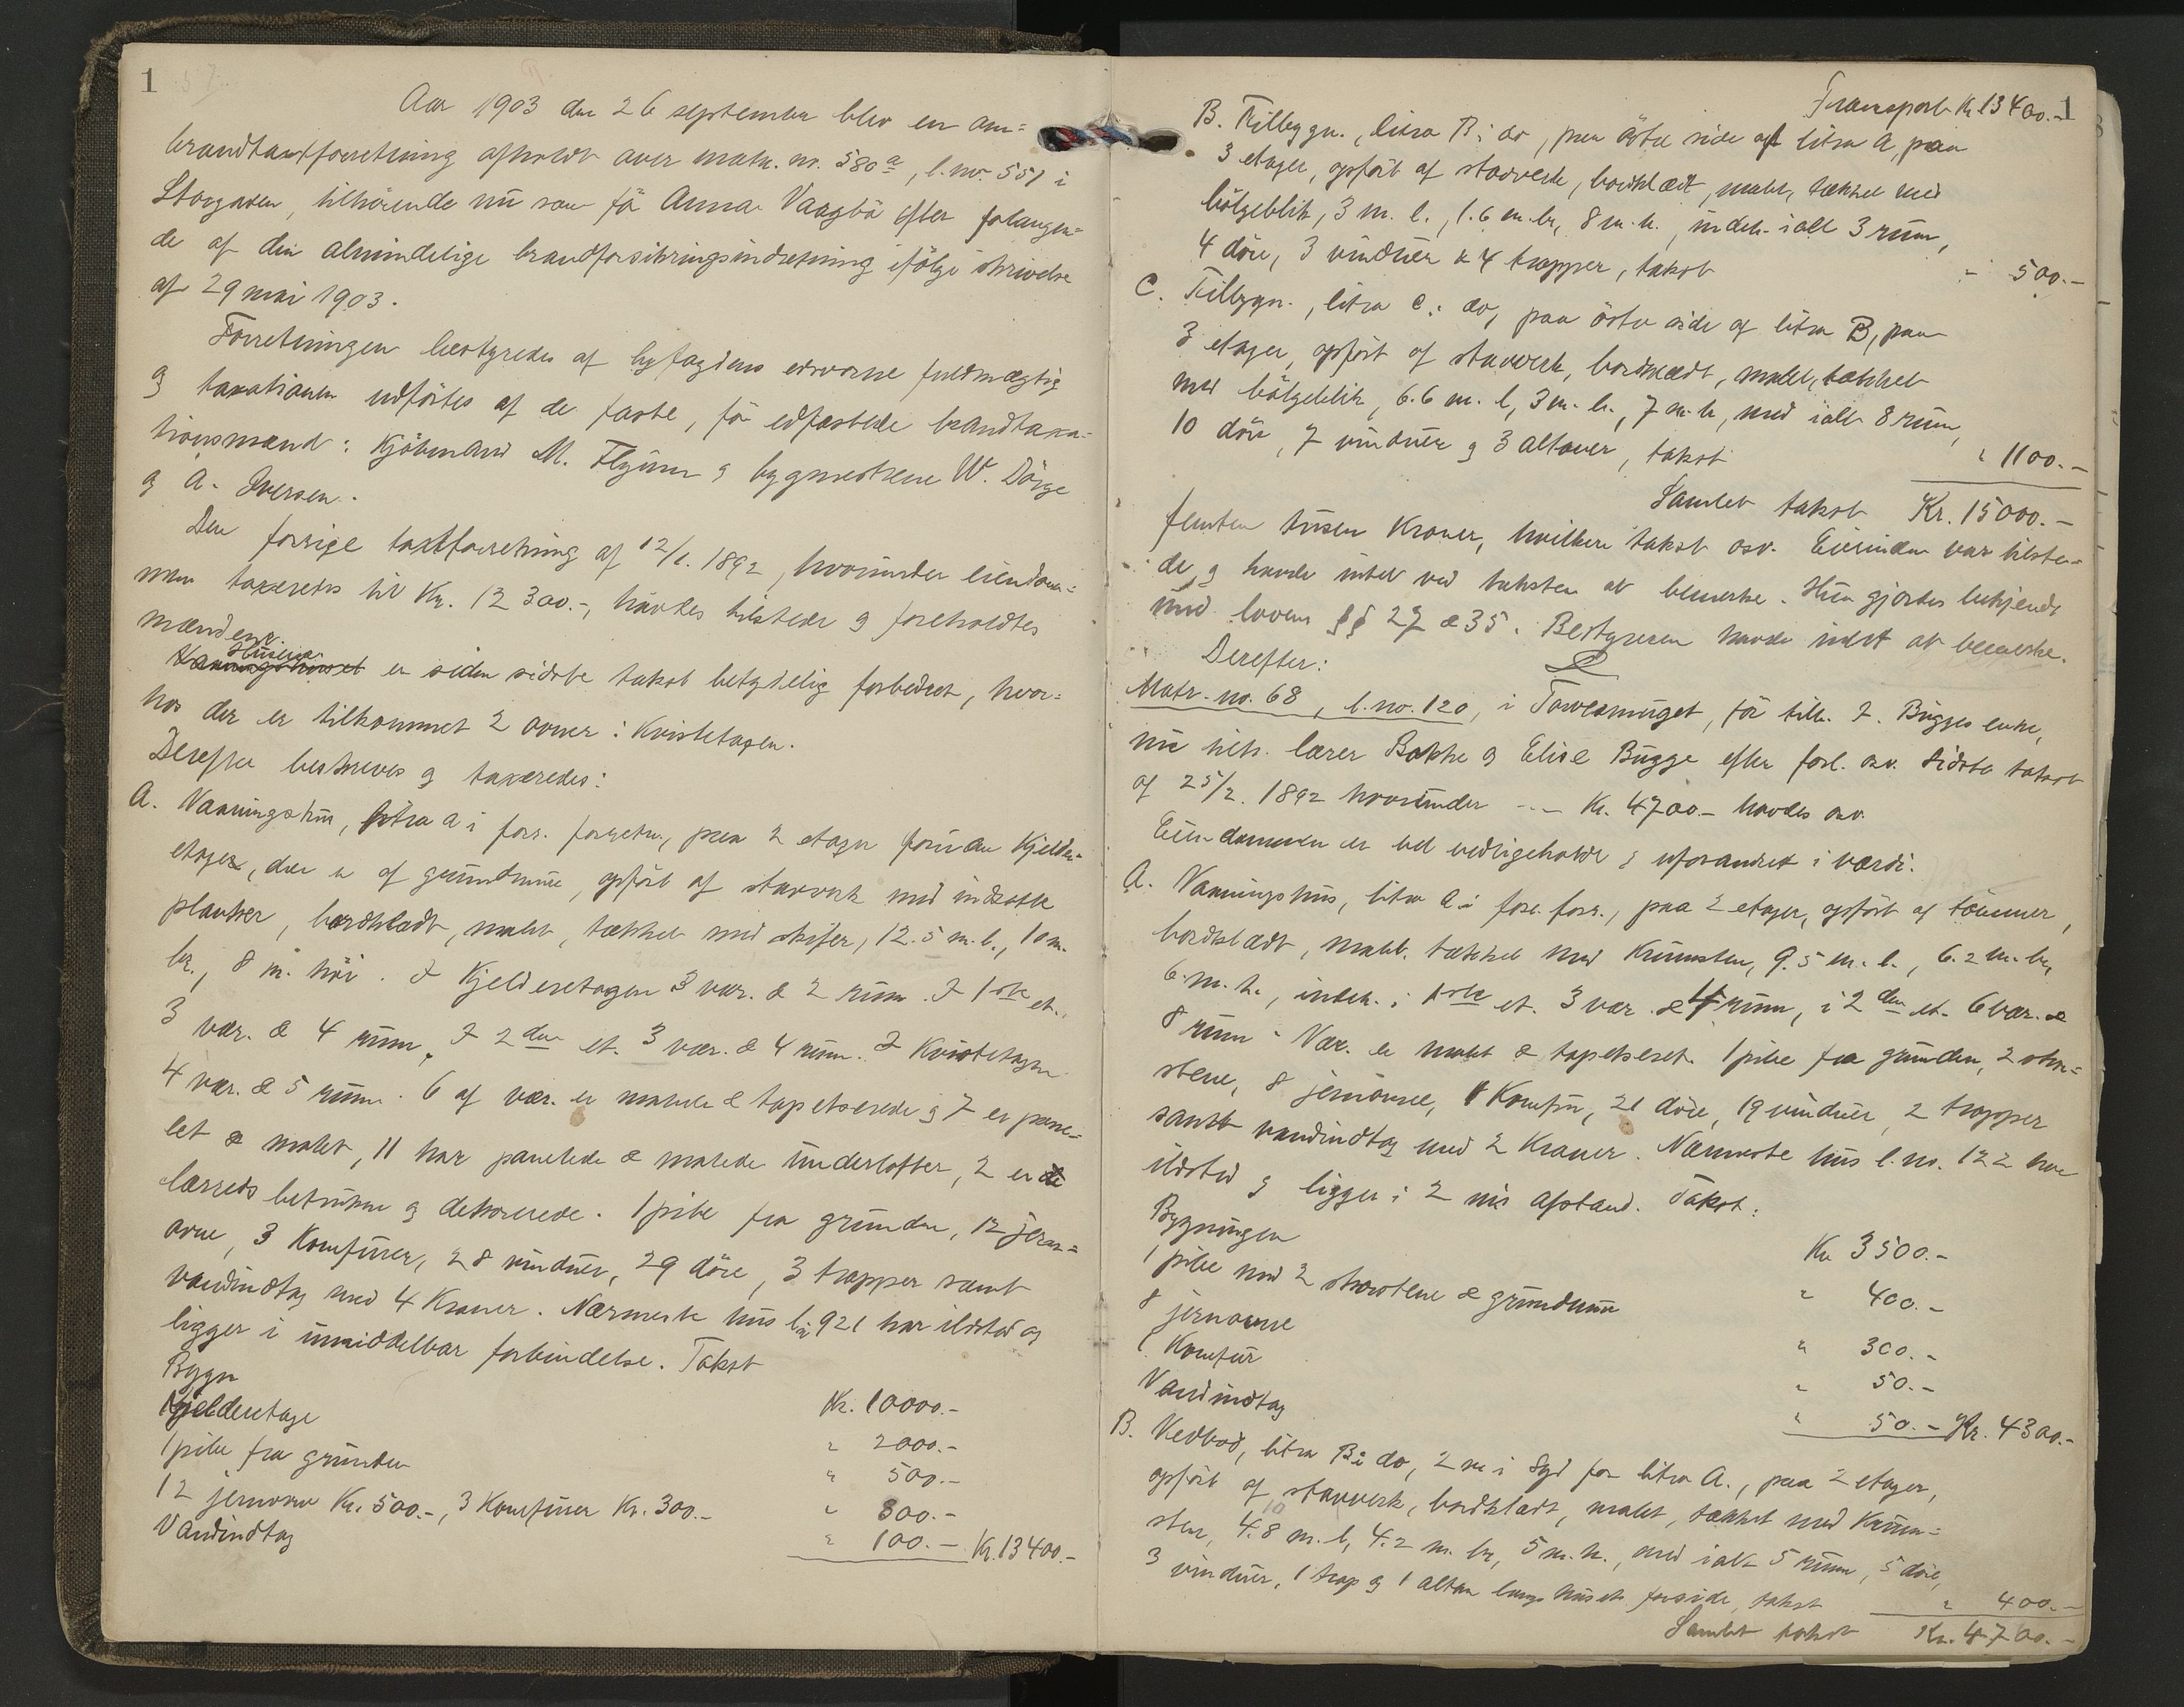 1
Aar 1903 den 26 september blev en om=
brandtaxtforretning afholdt over matr. no. 580a, l. no. 551 i
Storgaden, tilhörende nu som för Anna Vaagbö efter forlangen=
de af den almindelige brandforsikringsindretning ifölge skrivelse
af 29 mai 1903.
Forretningen bestyredes af byfogdens edsvorne fuldmægtig
og taxationen udförtes af de faste, för edfæstede brandtaxa=
tionsmænd: Kjöbmand M. Flynn og bygmestrene W. Dörge
og A. Iversen.
Den forrige taxtforretning af 12/1. 1892, hvorunder eiendom=
men taxeredes til Kr. 12 300.-, havdes tilstede og foreholdtes
mændene.
Huset
Vaaningshuset er siden sidste takst betydelig forbedret, hvor=
hos der er tilkommet 2 ovner i Kvistetagen.
Derefter beskreves og taxeredes:
A. Vaaningshus, litra a i forr. forretn., paa 2 etager foruden Kjelder=
etagen, der er af grundmur, opfört af stavverk med indsatte
planker, bordklædt, malet, tækket med skifer, 12.5 m. l., 10 m.
br., 8 m. höi. I Kjelderetagen 3 vær. & 2 rum. I 1ste et.
3 vær. & 4 rum. I 2den et. 3 vær. & 4 rum. I Kvistetagen
4 vær. & 5 rum. 6 af vær. er malede & tapetserede og 7 er pane=
let & malet, 11 har panelede & malede underlofter, 2 er
lærreds betrukne og dekorerede. 1 pibe fra grunden, 12 jern=
ovne, 3 Komfurer, 28 vinduer, 29 döre, 3 trapper samt
vandindtag med 4 Kraner. Nærmeste hus l. no 921 har ildsted og
ligger i umiddelbar forbindelse. Takst
Bygn Kr. 10000.-
Kjelderetage " 2000.-
1 pibe fra grunden " 500.-
12 jernovne Kr. 500.-, 3 Komfurer Kr. 300.- " 800.-
Vandindtag " 100.- Kr. 13400.-
1
Transport Kr 13400.-
B. Tilbygn., litra B i do, paa östre side af litra A, paa
3 etager, opfört af stavverk, bordklædt, malet, tækket med
bölgeblik, 3 m. l., 1.6 m. br, 8 m. h., indeh. ialt 3 rum,
4 döre, 3 vinduer & 4 trapper, takst " 500.-
C. Tilbygn., litra C i do, paa östre side af litra B, paa
3 etager, opfört af stavverk, bordklædt, malet, tækket
med bölgeblik, 6.6 m. l, 3 m. br., 7 m. h, med ialt 8 rum,
10 döre, 7 vinduer og 3 altaner, takst " 1100.-
Samlet takst Kr. 15000.-
femten tusen Kroner, hvilken takst osv. Eierinden var tilste=
de og havde intet ved taksten at bemerke. Hun gjordes bekjendt
med lovens §§ 27 & 35. Bestyreren havde intet at bemerke.
Derefter:
Matr. no. 68, l. no. 120, i Torvesmuget, för tilh. J. Bugges enke,
nu tilh. lærer Bakke og Elise Bugge efter forl. osv. Sidste takst
af 25/2. 1892 hvorunder --- Kr. 4700.- havdes osv.
Eiendommen er vel vedligeholdt og uforandret i værdi.
A. Vaaningshus, litra a i forr. forr., paa 2 etager, opfört af tömmer,
bordklædt, malet, tækket med Krumsten, 9.5 m. l., 6.2 m. br,
6 m. h., indeh. i 1ste et. 3 vær. & 4 rum, i 2den et. 6 vær. &
8 rum. Vær. er malet & tapetseret. 1 pibe fra grunden, 2 skor=
stene, 8 jernovne, 1 Komfur, 21 döre, 19 vinduer, 2 trapper
samt vandindtag med 2 Kraner. Nærmeste hus l. no. 122 har
ildsted og ligger i 2 ms afstand. Takst:
Bygningen Kr 3500.-
1 pibe med 2 skorstene & grundmur " 400.-
8 jernovne " 300.-
1 Komfur " 50.-
Vandindtag " 50.- Kr. 4300.-
B. Vedbod, litra B i do, 2 m i syd for litra A., paa 2 etager,
opfört af stavverk, bordklædt, malet, tækket med Krum=
sten, 4.8 m. l, 4.2 m. br, 5 m. h., med ialt 5 rum, 5 döre,
3 vinduer, 1 trap og 1 altan langs husets forside, takst " 400.-
Samlet takst Kr. 4700.-